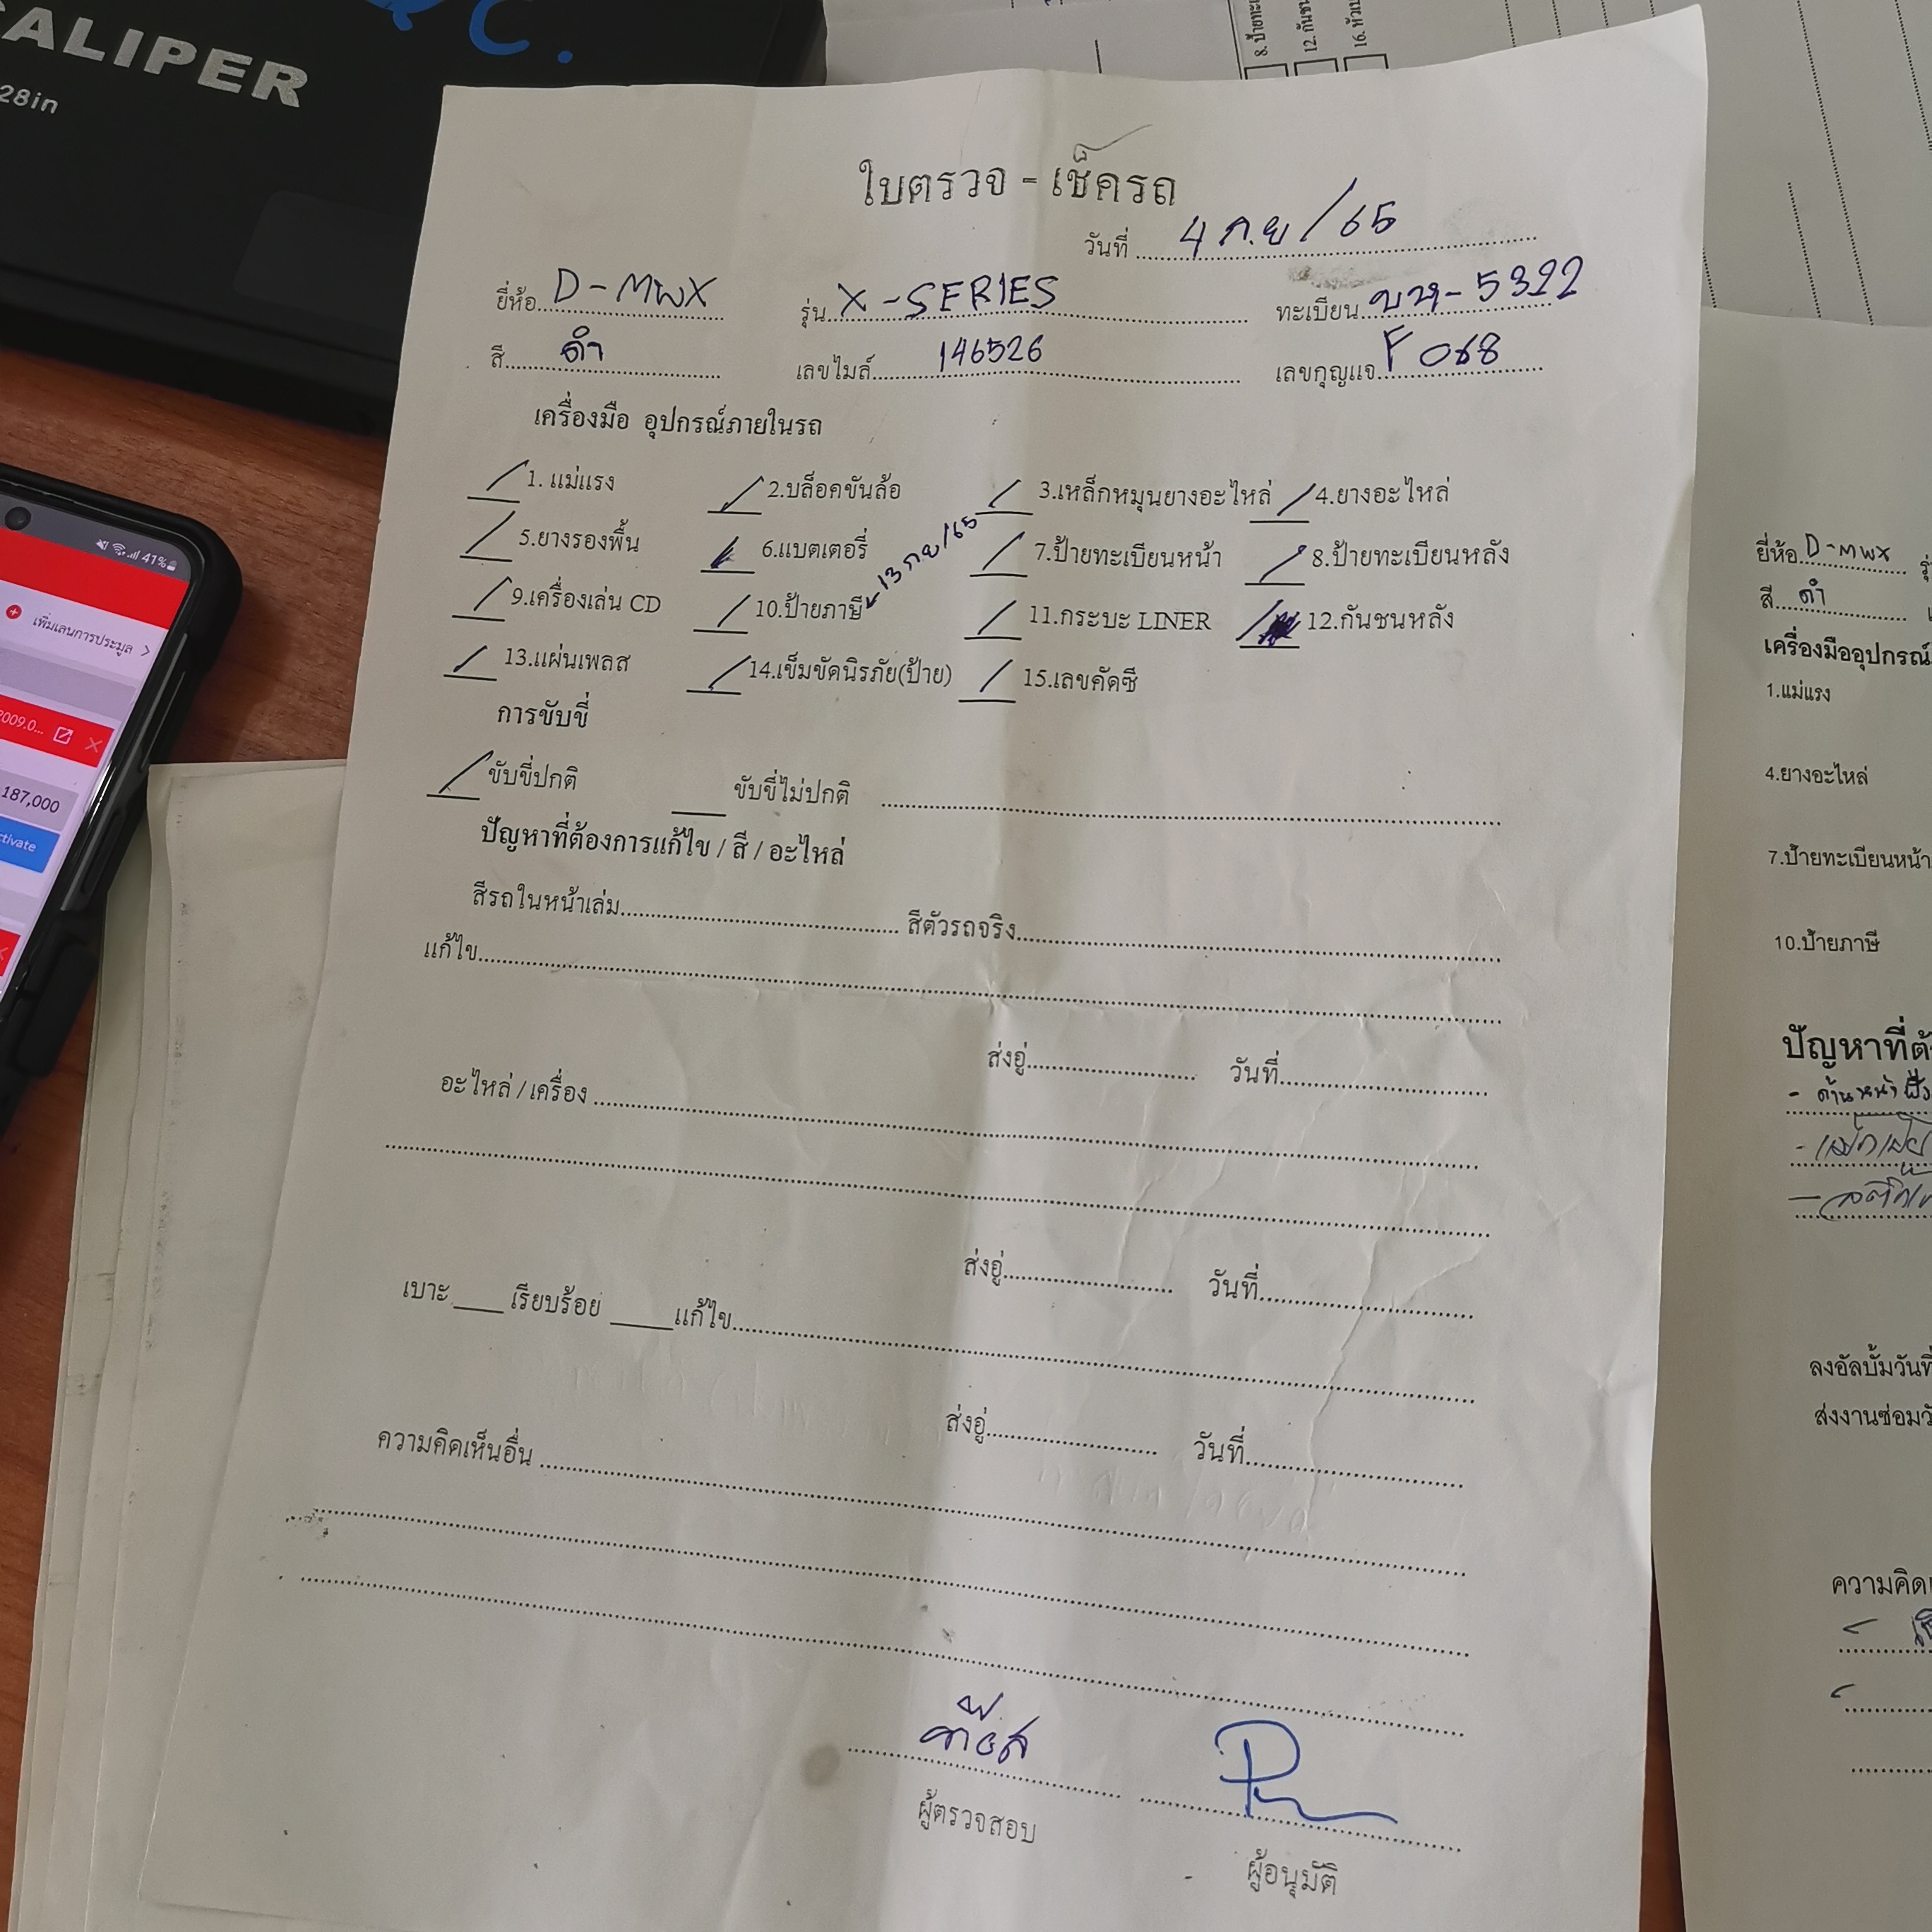 CALIPER
28in
QC.
8. ป้ายทะเ
12. กันชน
16. หัวเ
ใบตรวจ - เช็ครถ
วันที่ 4 ก.ย / 65
ยี่ห้อ D-MwX รุ่น X-SERIES ทะเบียน บห-5322
สี ดำ เลขไมล์ 146526 เลขกุญแจ F 068
เครื่องมือ อุปกรณ์ภายในรถ
/ 1. แม่แรง / 2.บล็อคขันล้อ / 3.เหล็กหมุนยางอะไหล่ / 4.ยางอะไหล่
/ 5.ยางรองพื้น / 6.แบตเตอรี่ / 7.ป้ายทะเบียนหน้า / 8.ป้ายทะเบียนหลัง
13 ก.ย/65
/ 9.เครื่องเล่น CD / 10.ป้ายภาษี / 11.กระบะ LINER / 12.กันชนหลัง
/ 13.แผ่นเพลส / 14.เข็มขัดนิรภัย(ป้าย) / 15.เลขคัดซี
การขับขี่
/ ขับขี่ปกติ ขับขี่ไม่ปกติ
ปัญหาที่ต้องการแก้ไข / สี / อะไหล่
สีรถในหน้าเล่ม สีตัวรถจริง
แก้ไข
ส่งอู่ วันที่
อะไหล่ / เครื่อง
ส่งอู่ วันที่
เบาะ ___ เรียบร้อย ___ แก้ไข
ส่งอู่ วันที่
ความคิดเห็นอื่น
ผู้ตรวจสอบ
ผู้อนุมัติ
41%
เพิ่มเลนการประมูล >
2009.0...
187,000
ctivate
ยี่ห้อ D-Mwx
สี ดำ
เครื่องมืออุปกรณ์
1.แม่แรง
4.ยางอะไหล่
7.ป้ายทะเบียนหน้า
10.ป้ายภาษี
ปัญหาที่ต้
- ด้านหน้า
ลงอัลบั้มวันที่
ส่งงานซ่อมวั
ความคิดเ